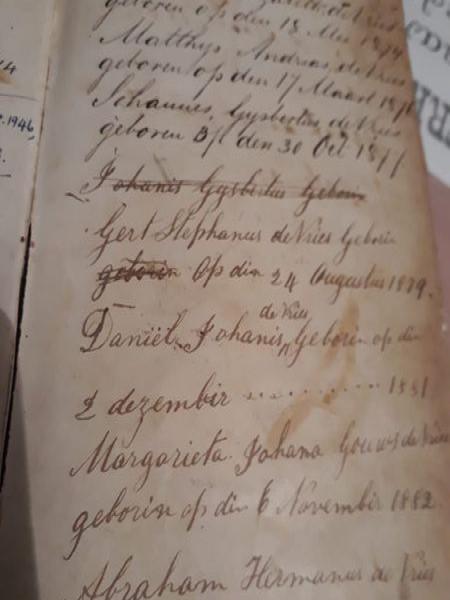 geboren op den 18 Mei 1874
Matthys Andries de Vries
geboren op den 17 Maart
Johannes Gysbertus de Vries
geboren Op den 30 Oct 1877
Johanis Gysbertus Geborin
Gert Stephanus de Vries Geborin
geborin Op din 24 Augustus 1879.
de Vries
Daniël Johanis, Geborin op din
2 dezembir ............ 1881
Margarieta Johana Gouws de Vries
geborin op din 6 Novembir 1882.
Abraham Hermanus de Vries
1946,